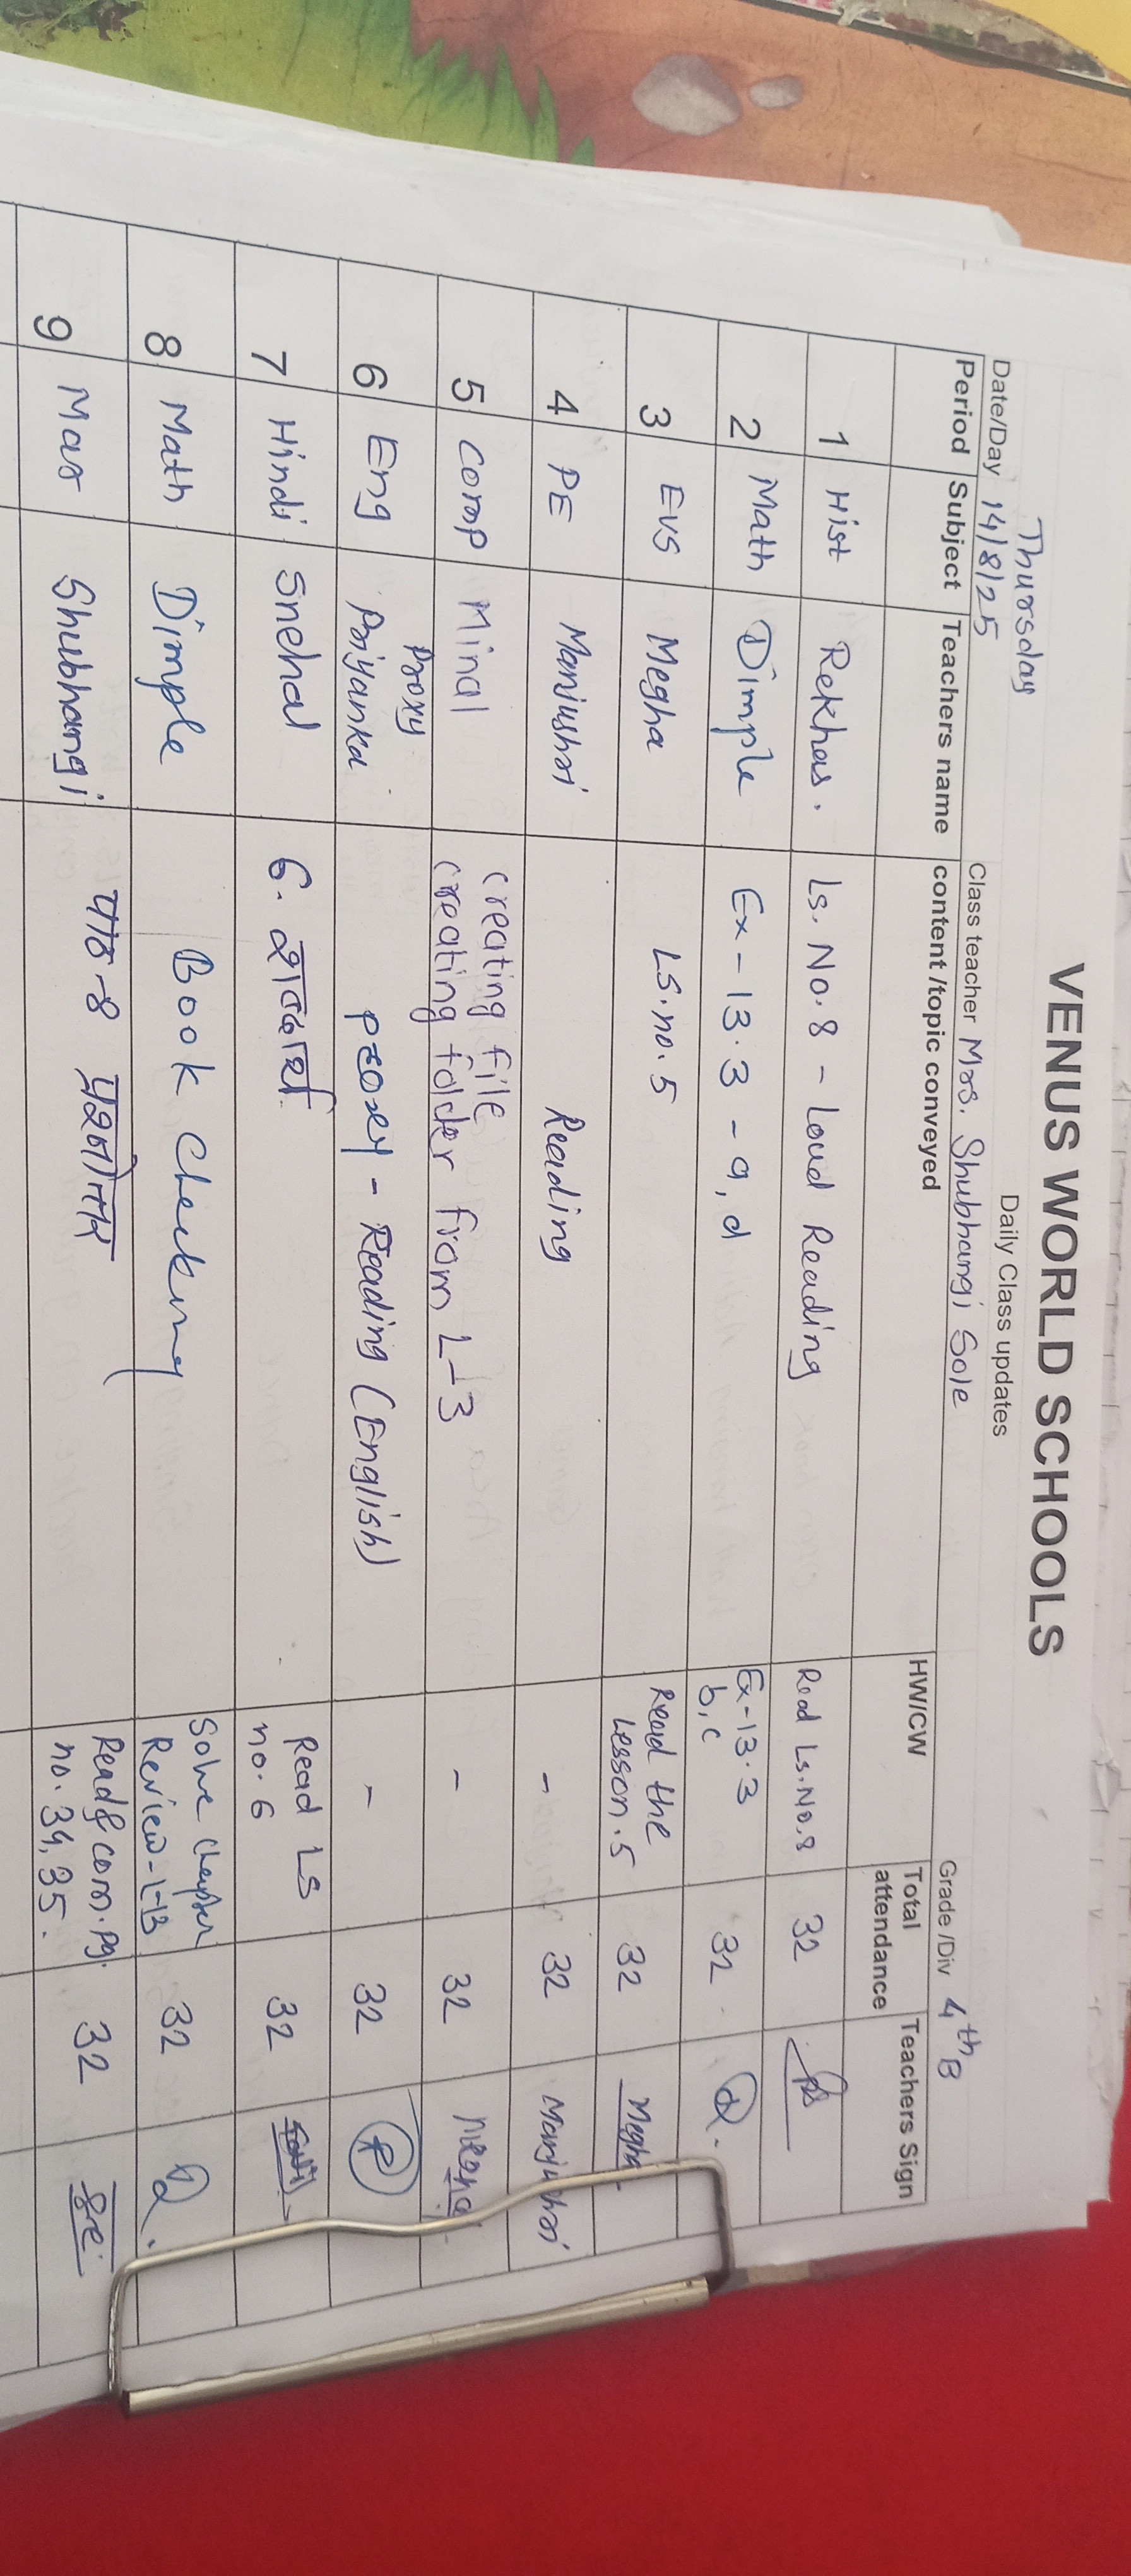 VENUS WORLD SCHOOLS
Daily Class updates
Thursday
Date/Day 14/8/25 Class teacher Mrs. Shubhangi Sole Grade /Div 4th B
Period Subject Teachers name content /topic conveyed HW/CW Total attendance Teachers Sign
1 Hist Rekha s. Ls. No. 8 - Loud Reading Read Ls. No. 8 32
2 Math Dimple Ex - 13.3 - a, d Ex-13.3 b, c 32
3 EVS Megha LS. no. 5 Read the Lesson. 5 32 Megha
4 PE Manjushri Reading - 32 Manjushri
5 Comp Minal creating file
creating folder from L-3 - 32
Proxy
6 Eng Priyanka Proxy - Reading (English) - 32 P
7 Hindi Snehal 6. शब्दार्थ Read LS no. 6 32
8 Math Dimple Book Checking Solve Chapter Review-L-13 32
9 Mar Shubhangi पाठ-8 प्रश्नोत्तर Read & com. pg. no. 34, 35. 32